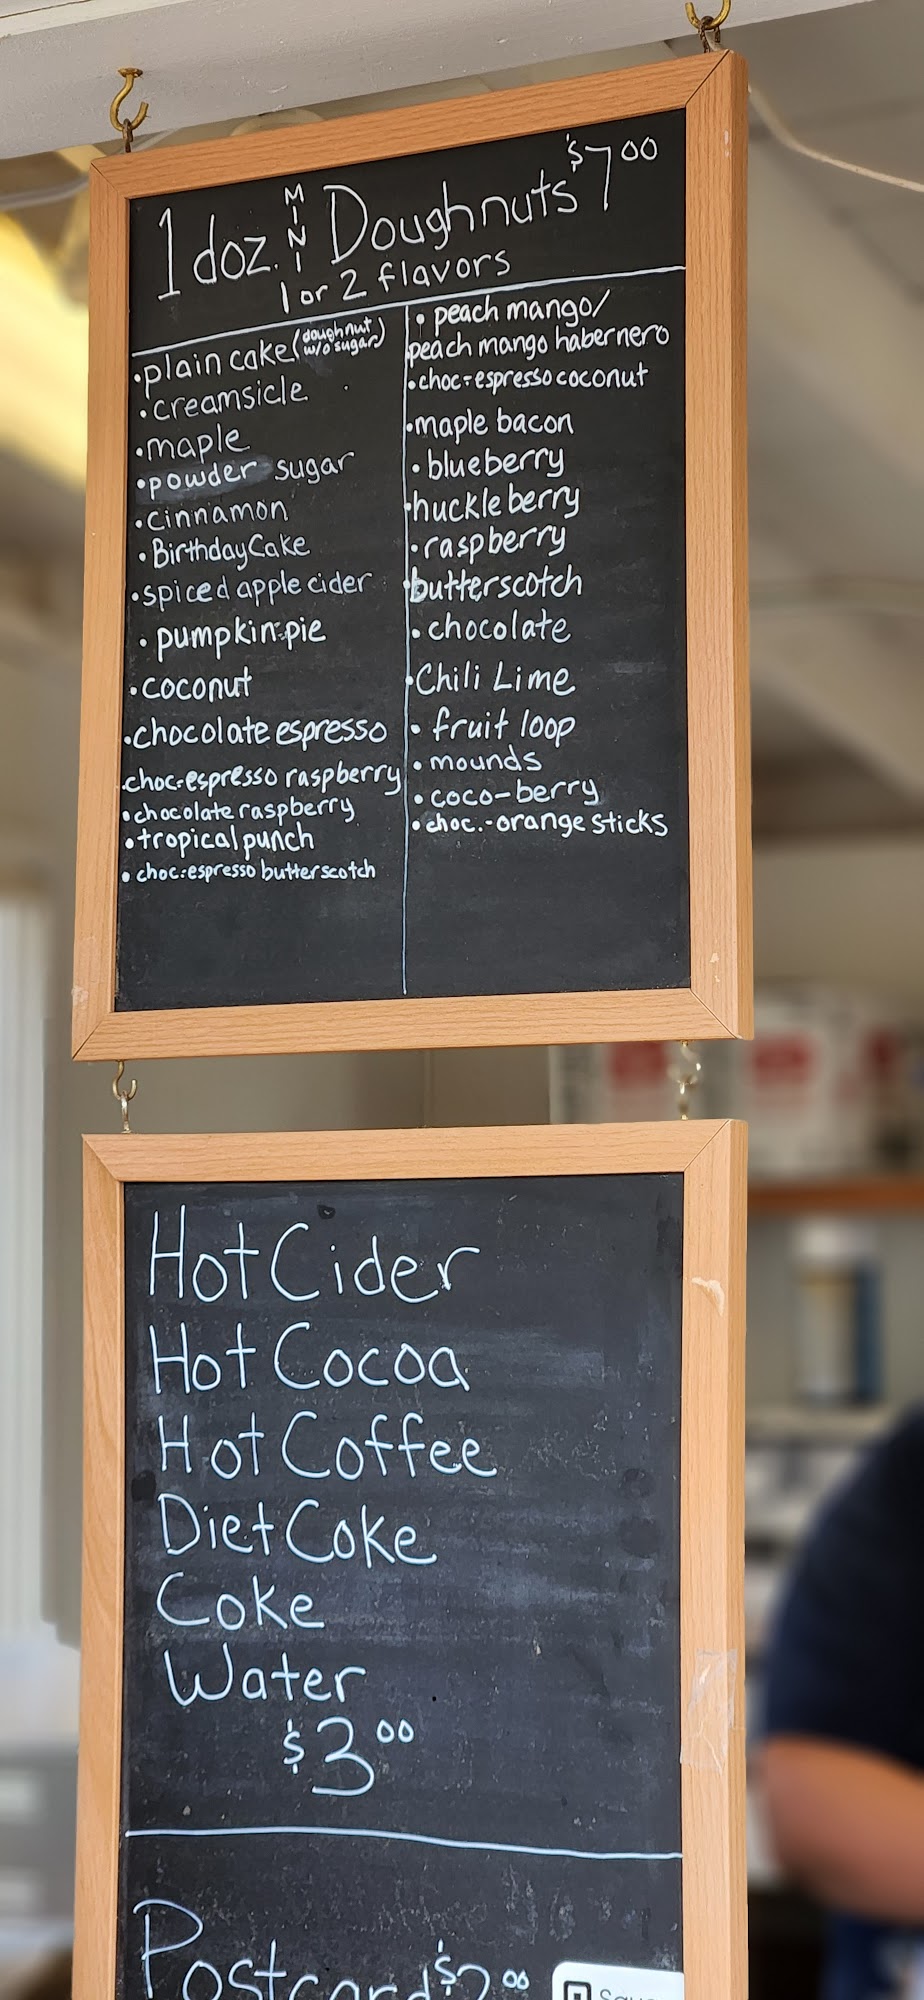 1 doz. MINI Doughnuts $7.00
1 or 2 flavors
• plain cake (doughnut w/o sugar)
• creamsicle
• maple
• powder sugar
• cinnamon
• Birthday Cake
• spiced apple cider
• pumpkin pie
• coconut
• chocolate espresso
• choc-espresso raspberry
• chocolate raspberry
• tropical punch
• choc-espresso butterscotch
• peach mango/
peach mango habernero
• choc-espresso coconut
• maple bacon
• blueberry
• huckleberry
• raspberry
• butterscotch
• chocolate
• Chili Lime
• fruit loop
• mounds
• coco-berry
• choc.-orange sticks
Hot Cider
Hot Cocoa
Hot Coffee
Diet Coke
Coke
Water
$3.00
Postcard $2.00